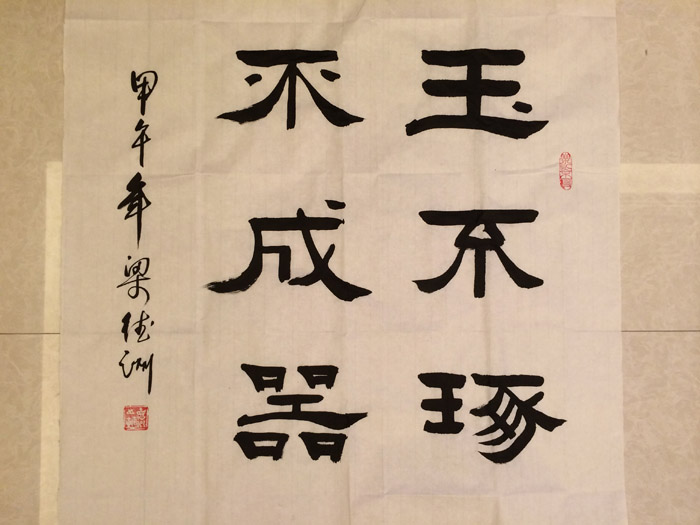 玉不琢
不成器
甲午年梁德训